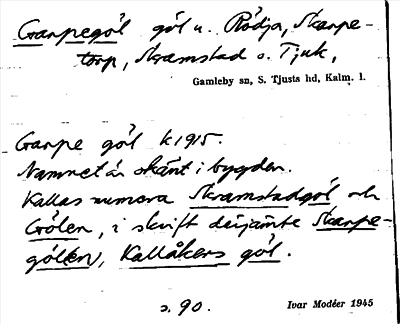 Garpegöl göl u. Rödja, Skarpe-
torp, Skramstad o. Tjuk,
Gamleby sn, S. Tjusts hd, Kalm. l.
Garpe göl k 1915.
Namnet är okänt i bygden.
Kallas numera Skramstadgöl och
Gölen, i skrift därjämte Skarpe-
gölen, Kallåkers göl.
s. 90.
Ivar Modéer 1945